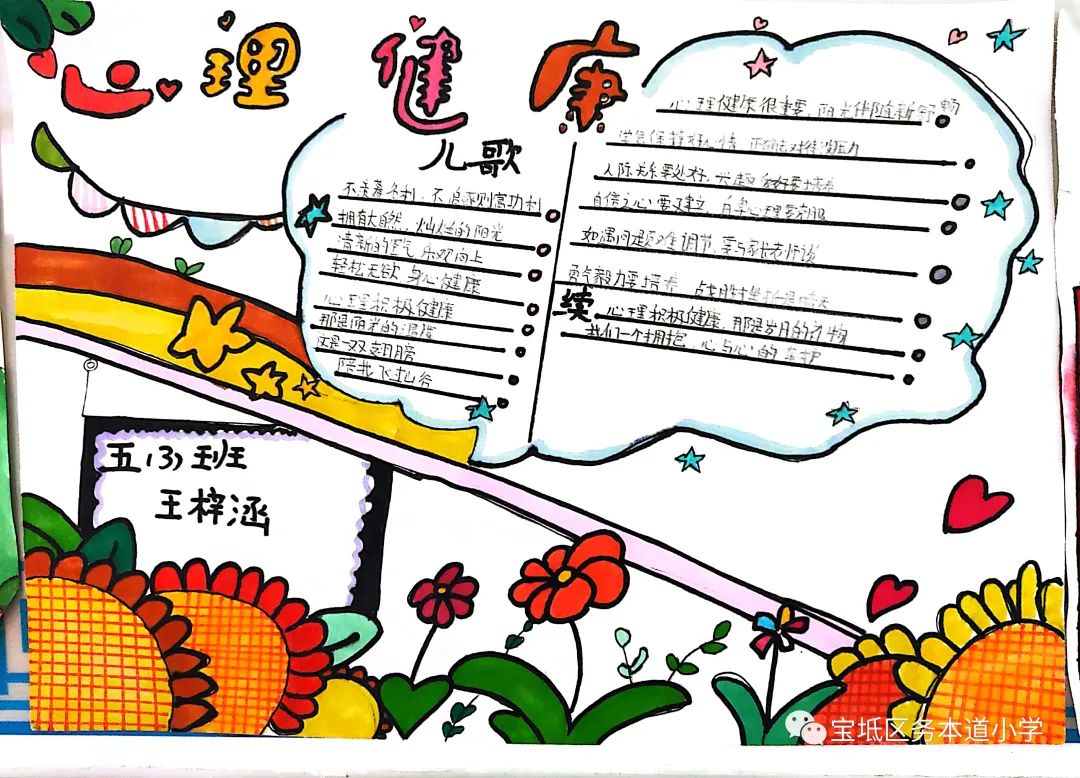 心理健康
儿歌
不羡慕名利,不追求财富功利
拥抱大自然,灿烂的阳光
清新的空气,乐观向上
轻松无欲 身心健康
心理积极健康
那是萌芽的温度
这是一双翅膀
陪我飞过山谷
心理健康很重要,阳光伴随新舒畅
学氛保持好心情 正确对待没压力
人际关系要处好,兴趣爱好要培养
自信之心要建立,自卑心理要克服
如遇问题难调节,要与家长老师谈
勇气毅力要培养 战胜挫折是晴天
续 心理积极健康,那是岁月的礼物
我们一个拥抱,心与心的
五(3)班
王梓涵
宝坻区务本道小学